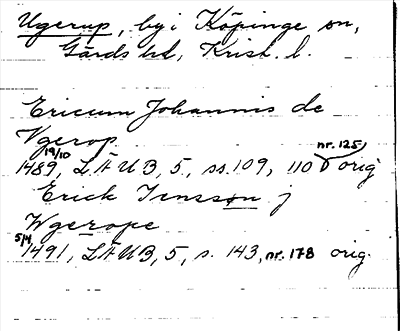 Ugerup, by i Köpinge sn,
Gärds hd, Krist. l.
Ericum Johannis de
Vgerop
19/10 1489, LÄUB, 5, ss. 109, 110 nr. 125 orig
Erick Jenssøn j
Wgerope
5/4 1491, LÄUB, 5, s. 143, nr. 178 orig.